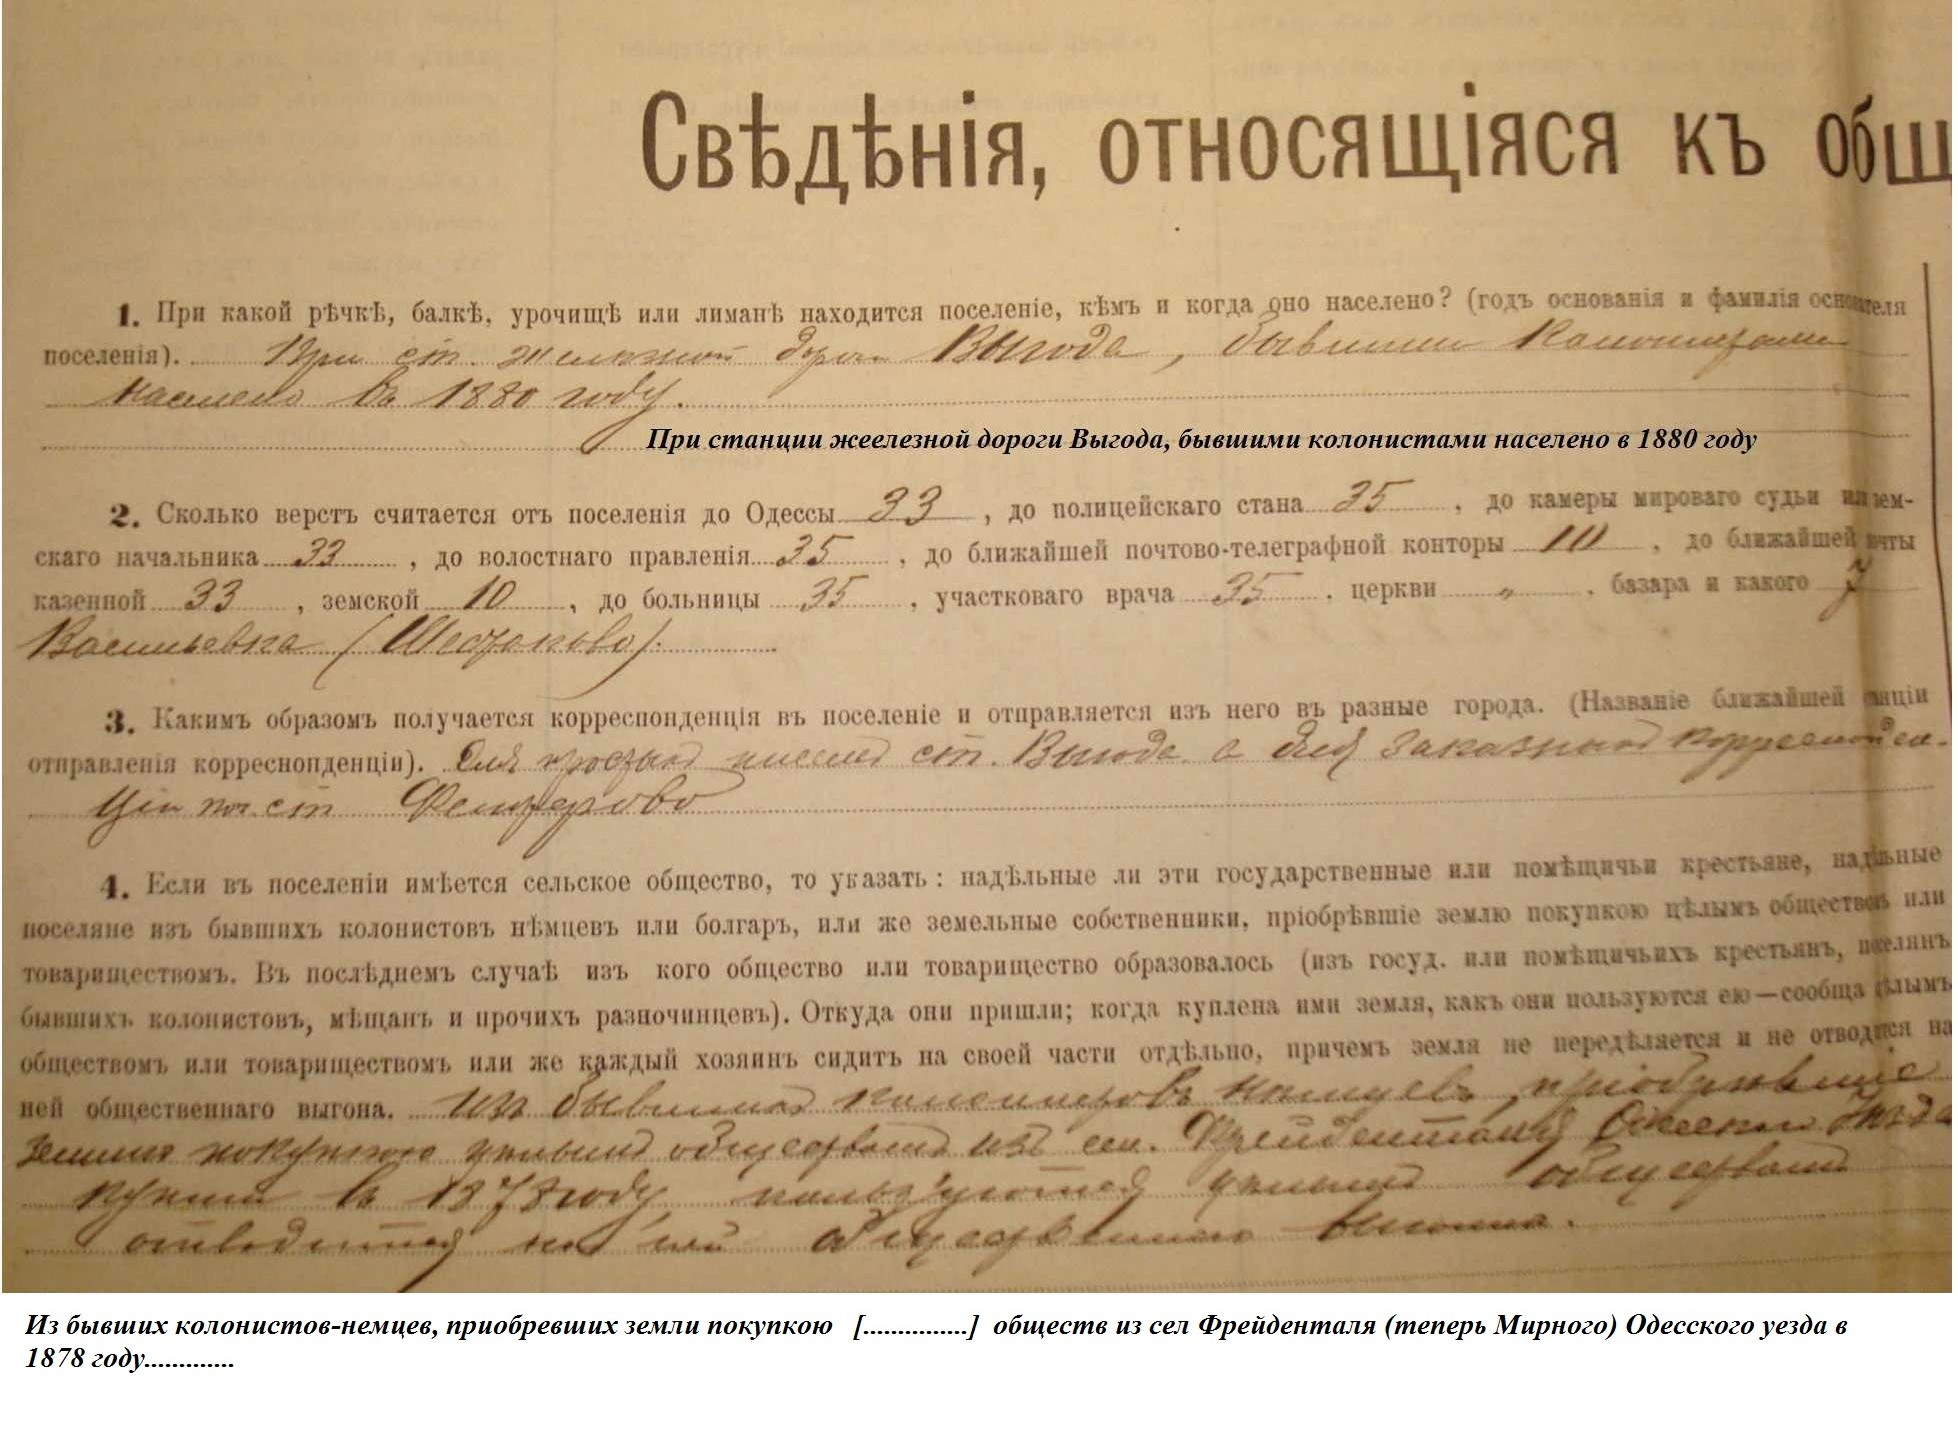 Свѣдѣнія, относящіяся къ общ
1. При какой рѣчкѣ, балкѣ, урочищѣ или лиманѣ находится поселеніе, кѣмъ и когда оно населено? (годъ основанія и фамилія основателя
поселенія). При ст. желѣзной дороги Выгода, бывшими колонистами
населено въ 1880 году.
При станции жеелезной дороги Выгода, бывшими колонистами населено в 1880 году
2. Сколько верстъ считается отъ поселенія до Одессы 33, до полицейскаго стана 35, до камеры мироваго судьи или зем-
скаго начальника 33, до волостнаго правленія 35, до ближайшей почтово-телеграфной конторы 10, до ближайшей почты
казенной 33, земской 10, до больницы 35, участковаго врача 35, церкви „, базара и какого 7
Васильевка
3. Какимъ образомъ получается корреспонденція въ поселеніе и отправляется изъ него въ разные города. (Названіе ближайшей станціи
отправленія корреспонденціи). Для простыхъ писемъ ст. Выгода а для заказной корреспонден-
ціи ст
4. Если въ поселеніи имѣется сельское общество, то указать: надѣльные ли эти государственные или помѣщичьи крестьяне, надѣльные
поселяне изъ бывшихъ колонистовъ нѣмцевъ или болгаръ, или же земельные собственники, пріобрѣвшіе землю покупкою цѣлымъ обществомъ или
товариществомъ. Въ послѣднемъ случаѣ изъ кого общество или товарищество образовалось (изъ госуд. или помѣщичьихъ крестьянъ, поселянъ
бывшихъ колонистовъ, мѣщанъ и прочихъ разночинцевъ). Откуда они пришли; когда куплена ими земля, какъ они пользуются ею—сообща цѣлымъ
обществомъ или товариществомъ или же каждый хозяинъ сидитъ на своей части отдѣльно, причемъ земля не передѣляется и не отводится на
ней общественнаго выгона. Изъ бывшихъ колонистовъ нѣмцевъ, пріобрѣвшіе
землю покупкою цѣлымъ обществомъ изъ сел. Фрейденталя Одесскаго уѣзда
купили въ 1878 году, пользуются цѣлымъ обществомъ
отводится на ней общественнаго выгона.
Из бывших колонистов-немцев, приобревших земли покупкою [...............] обществ из сел Фрейденталя (теперь Мирного) Одесского уезда в
1878 году.............